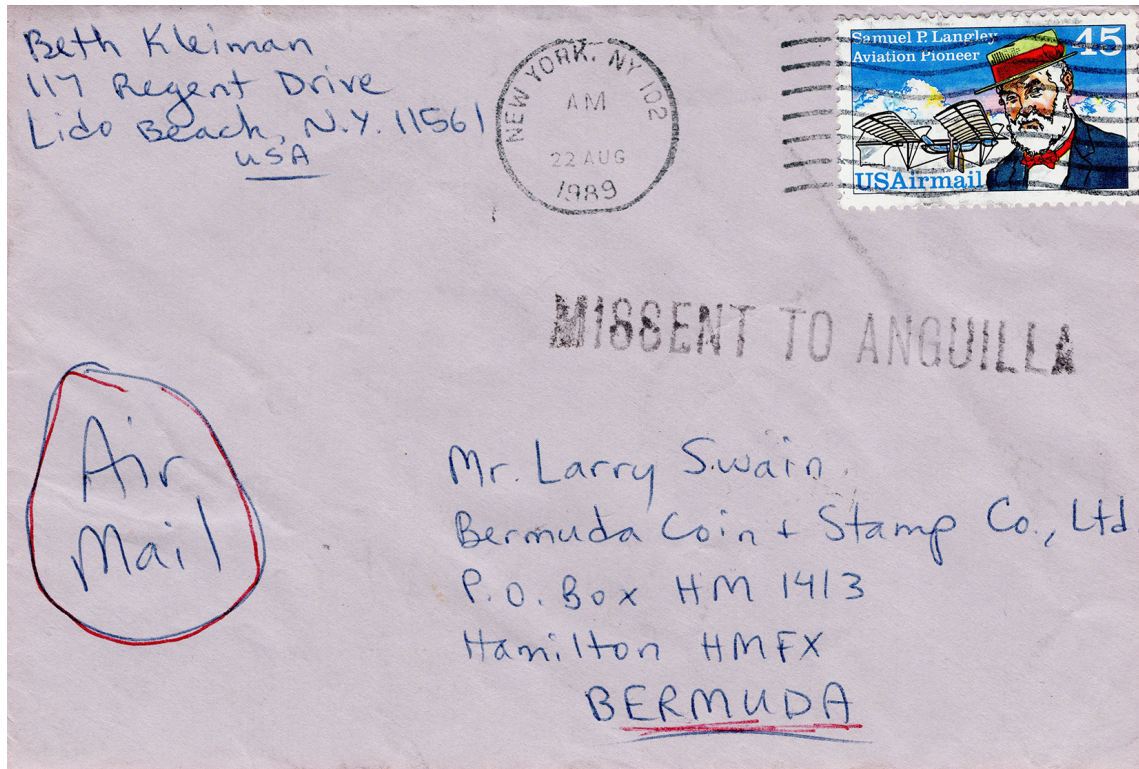 Beth Kleiman
117 Regent Drive
Lido Beach, N.Y. 11561
USA
NEW YORK, NY 102
AM
22 AUG
1989
Samuel P. Langley
Aviation Pioneer
45
USAirmail
MISSENT TO ANGUILLA
Air
Mail
Mr. Larry Swain
Bermuda Coin + Stamp Co., Ltd
P.O. Box HM 1413
Hamilton HMFX
BERMUDA